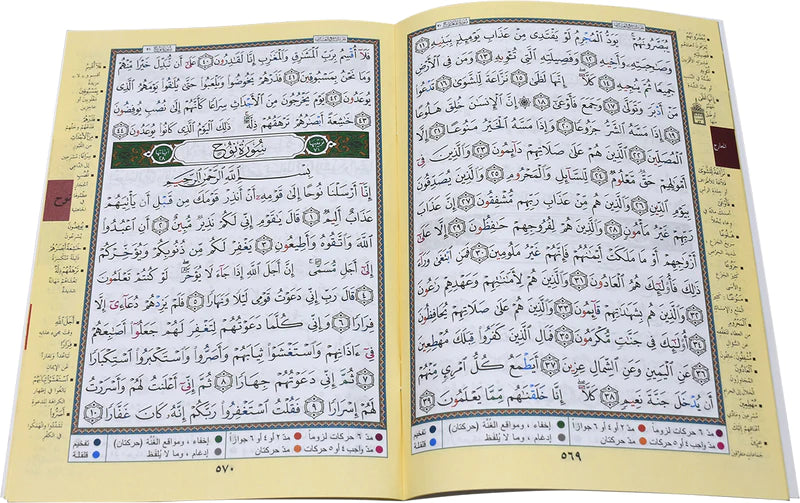 يُبَصَّرُونَهُمْ ۚ يَوَدُّ ٱلْمُجْرِمُ لَوْ يَفْتَدِى مِنْ عَذَابِ يَوْمِئِذٍۭ بِبَنِيهِ ١١
وَصَٰحِبَتِهِۦ وَأَخِيهِ ١٢ وَفَصِيلَتِهِ ٱلَّتِى تُـْٔوِيهِ ١٣ وَمَن فِى ٱلْأَرْضِ
جَمِيعًا ثُمَّ يُنجِيهِ ١٤ كَلَّآ ۖ إِنَّهَا لَظَىٰ ١٥ نَزَّاعَةً لِّلشَّوَىٰ ١٦ تَدْعُوا۟
مَنْ أَدْبَرَ وَتَوَلَّىٰ ١٧ وَجَمَعَ فَأَوْعَىٰٓ ١٨ ۞ إِنَّ ٱلْإِنسَٰنَ خُلِقَ هَلُوعًا
١٩ إِذَا مَسَّهُ ٱلشَّرُّ جَزُوعًا ٢٠ وَإِذَا مَسَّهُ ٱلْخَيْرُ مَنُوعًا ٢١ إِلَّا
ٱلْمُصَلِّينَ ٢٢ ٱلَّذِينَ هُمْ عَلَىٰ صَلَاتِهِمْ دَآئِمُونَ ٢٣ وَٱلَّذِينَ فِىٓ
أَمْوَٰلِهِمْ حَقٌّ مَّعْلُومٌ ٢٤ لِّلسَّآئِلِ وَٱلْمَحْرُومِ ٢٥ وَٱلَّذِينَ يُصَدِّقُونَ
بِيَوْمِ ٱلدِّينِ ٢٦ وَٱلَّذِينَ هُم مِّنْ عَذَابِ رَبِّهِم مُّشْفِقُونَ ٢٧ إِنَّ عَذَابَ
رَبِّهِمْ غَيْرُ مَأْمُونٍ ٢٨ وَٱلَّذِينَ هُمْ لِفُرُوجِهِمْ حَٰفِظُونَ ٢٩ إِلَّا عَلَىٰٓ
أَزْوَٰجِهِمْ أَوْ مَا مَلَكَتْ أَيْمَٰنُهُمْ فَإِنَّهُمْ غَيْرُ مَلُومِينَ ٣٠ فَمَنِ ٱبْتَغَىٰ وَرَآءَ
ذَٰلِكَ فَأُو۟لَٰٓئِكَ هُمُ ٱلْعَادُونَ ٣١ وَٱلَّذِينَ هُمْ لِأَمَٰنَٰتِهِمْ وَعَهْدِهِمْ رَٰعُونَ
٣٢ وَٱلَّذِينَ هُم بِشَهَٰدَٰتِهِمْ قَآئِمُونَ ٣٣ وَٱلَّذِينَ هُمْ عَلَىٰ صَلَاتِهِمْ يُحَافِظُونَ
٣٤ أُو۟لَٰٓئِكَ فِى جَنَّٰتٍ مُّكْرَمُونَ ٣٥ فَمَالِ ٱلَّذِينَ كَفَرُوا۟ قِبَلَكَ مُهْطِعِينَ
٣٦ عَنِ ٱلْيَمِينِ وَعَنِ ٱلشِّمَالِ عِزِينَ ٣٧ أَيَطْمَعُ كُلُّ ٱمْرِئٍ مِّنْهُمْ
أَن يُدْخَلَ جَنَّةَ نَعِيمٍ ٣٨ كَلَّآ ۖ إِنَّا خَلَقْنَٰهُم مِّمَّا يَعْلَمُونَ ٣٩
المعارج
مدّ ٦ حركات لزوماً مدّ ٢ أو ٤ أو ٦ جوازاً إخفاء ، ومواقع الغُنَّة (حركتان) تفخيم
مدّ واجب ٤ أو ٥ حركات مدّ حركتان إدغام ، وما لا يُلفَظ قلقلة
٥٦٩
فَلَآ أُقْسِمُ بِرَبِّ ٱلْمَشَٰرِقِ وَٱلْمَغَٰرِبِ إِنَّا لَقَٰدِرُونَ ٤٠ عَلَىٰٓ أَن نُّبَدِّلَ خَيْرًا مِّنْهُمْ
وَمَا نَحْنُ بِمَسْبُوقِينَ ٤١ فَذَرْهُمْ يَخُوضُوا۟ وَيَلْعَبُوا۟ حَتَّىٰ يُلَٰقُوا۟ يَوْمَهُمُ ٱلَّذِى
يُوعَدُونَ ٤٢ يَوْمَ يَخْرُجُونَ مِنَ ٱلْأَجْدَاثِ سِرَاعًا كَأَنَّهُمْ إِلَىٰ نُصُبٍ يُوفِضُونَ
٤٣ خَٰشِعَةً أَبْصَٰرُهُمْ تَرْهَقُهُمْ ذِلَّةٌ ۚ ذَٰلِكَ ٱلْيَوْمُ ٱلَّذِى كَانُوا۟ يُوعَدُونَ ٤٤
سُورَةُ نُوحٍ
بِسْمِ ٱللَّهِ ٱلرَّحْمَٰنِ ٱلرَّحِيمِ
إِنَّآ أَرْسَلْنَا نُوحًا إِلَىٰ قَوْمِهِۦٓ أَنْ أَنذِرْ قَوْمَكَ مِن قَبْلِ أَن يَأْتِيَهُمْ
عَذَابٌ أَلِيمٌ ١ قَالَ يَٰقَوْمِ إِنِّى لَكُمْ نَذِيرٌ مُّبِينٌ ٢ أَنِ ٱعْبُدُوا۟
ٱللَّهَ وَٱتَّقُوهُ وَأَطِيعُونِ ٣ يَغْفِرْ لَكُم مِّن ذُنُوبِكُمْ وَيُؤَخِّرْكُمْ
إِلَىٰٓ أَجَلٍ مُّسَمًّى ۚ إِنَّ أَجَلَ ٱللَّهِ إِذَا جَآءَ لَا يُؤَخَّرُ ۖ لَوْ كُنتُمْ تَعْلَمُونَ
٤ قَالَ رَبِّ إِنِّى دَعَوْتُ قَوْمِى لَيْلًا وَنَهَارًا ٥ فَلَمْ يَزِدْهُمْ دُعَآءِىٓ إِلَّا
فِرَارًا ٦ وَإِنِّى كُلَّمَا دَعَوْتُهُمْ لِتَغْفِرَ لَهُمْ جَعَلُوٓا۟ أَصَٰبِعَهُمْ
فِىٓ ءَاذَانِهِمْ وَٱسْتَغْشَوْا۟ ثِيَابَهُمْ وَأَصَرُّوا۟ وَٱسْتَكْبَرُوا۟ ٱسْتِكْبَارًا
٧ ثُمَّ إِنِّى دَعَوْتُهُمْ جِهَارًا ٨ ثُمَّ إِنِّىٓ أَعْلَنتُ لَهُمْ وَأَسْرَرْتُ
لَهُمْ إِسْرَارًا ٩ فَقُلْتُ ٱسْتَغْفِرُوا۟ رَبَّكُمْ إِنَّهُۥ كَانَ غَفَّارًا ١٠
نوح
مدّ ٦ حركات لزوماً مدّ ٢ أو ٤ أو ٦ جوازاً إخفاء ، ومواقع الغُنَّة (حركتان) تفخيم
مدّ واجب ٤ أو ٥ حركات مدّ حركتان إدغام ، وما لا يُلفَظ قلقلة
٥٧٠